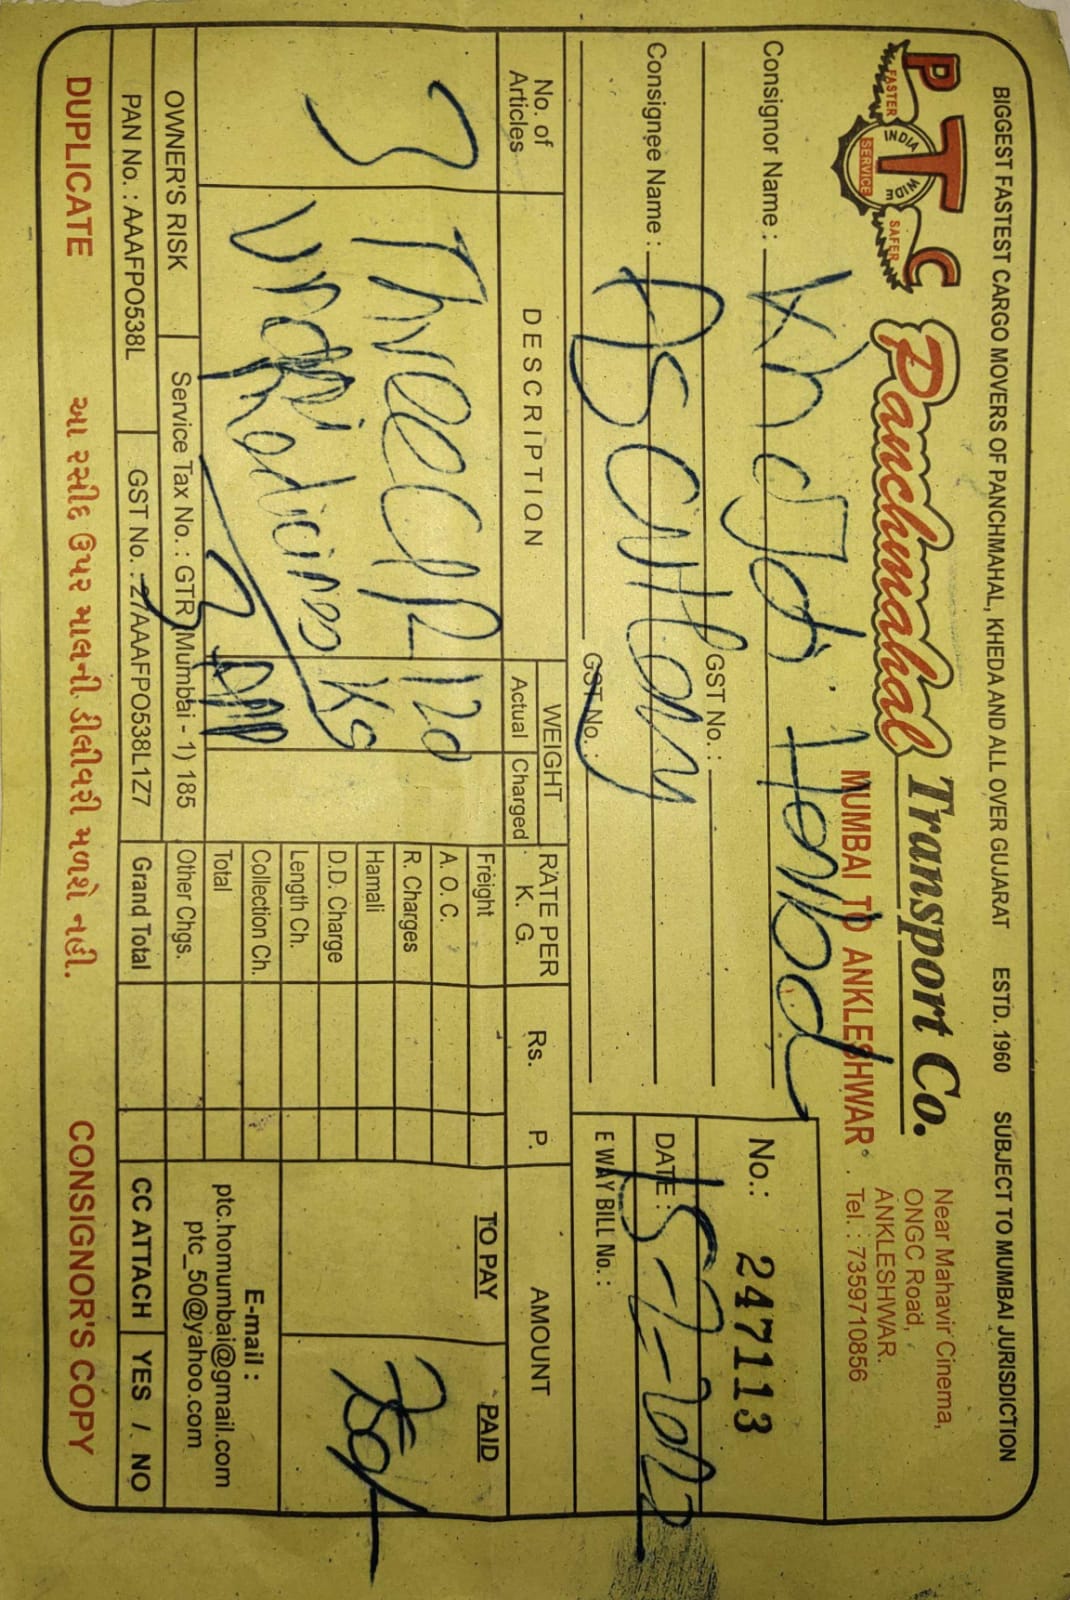 BIGGEST FASTEST CARGO MOVERS OF PANCHMAHAL, KHEDA AND ALL OVER GUJARAT ESTD. 1960 SUBJECT TO MUMBAI JURISDICTION
PTC
FASTER INDIA WIDE SERVICE SAFER
Panchmahal Transport Co.
MUMBAI TO ANKLESHWAR
Near Mahavir Cinema,
ONGC Road,
ANKLESHWAR.
Tel. : 7359710856
Consignor Name :
GST No. :
Consignee Name :
GST No. :
No.: 247113
DATE : 15-7-
E WAY BILL No. :
No. of Articles
DESCRIPTION
WEIGHT
Actual Charged
RATE PER K. G.
Rs. P.
AMOUNT
TO PAY PAID
3
Three 120
KG
Freight
A. O. C.
R. Charges
Hamali
D.D. Charge
Length Ch.
Collection Ch.
Total
Other Chgs.
Grand Total
E-mail :
ptc.homumbai@gmail.com
ptc_50@yahoo.com
OWNER'S RISK Service Tax No. : GTR )Mumbai - 1) 185
PAN No. : AAAFPO538L GST No. : 27AAAFPO538L1Z7
CC ATTACH YES / NO
DUPLICATE આ રસીદ ઉપર માલની ડીલીવરી મળશે નહી. CONSIGNOR'S COPY